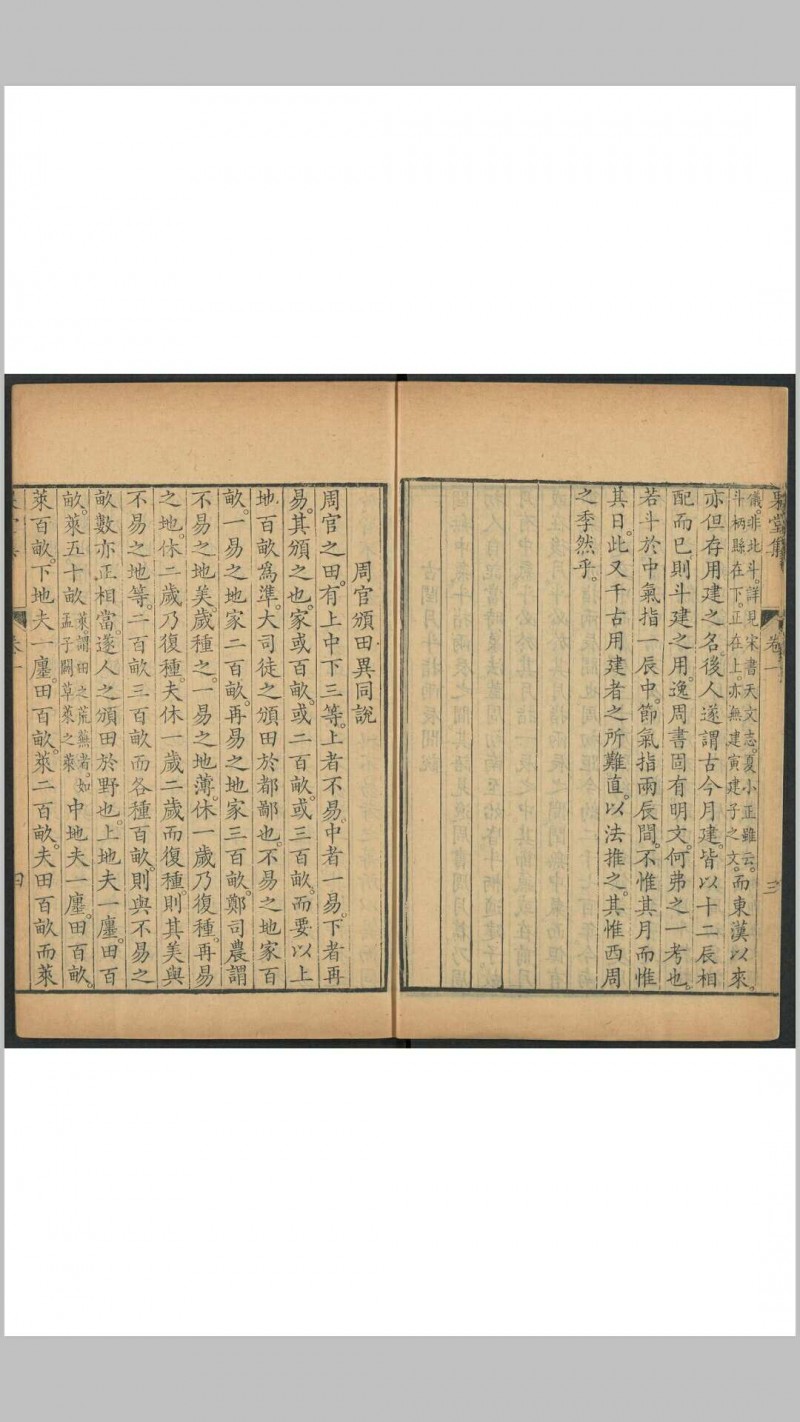 果堂集
卷一
三
儀。非北斗。詳見宋書天文志。夏小正雖云。
斗柄縣在下。正在上。亦無建寅建子之文。
而東漢以來。
亦但存用建之名。後人遂謂古今月建。皆以十二辰相
配而已。則斗建之用。逸周書固有明文。何弗之一考也。
若斗於中氣指一辰中。節氣指兩辰間。不惟其月而惟
其日。此又千古用建者之所難直。以法推之。其惟西周
之季然乎。
周官頒田異同說
周官之田。有上中下三等。上者不易。中者一易。下者再
易。其頒之也。家或百畝。或二百畝。或三百畝。而要以上
地百畝為準。大司徒之頒田於都鄙也。不易之地家百
畝。一易之地家二百畝。再易之地家三百畝。鄭司農謂
不易之地美。歲種之。一易之地薄。休一歲乃復種。再易
之地。休二歲乃復種。夫休一歲二歲而復種。則其美與
不易之地等。二百畝三百畝而各種百畝。則與不易之
畝數亦正相當。遂人之頒田於野也。上地夫一廛。田百
畝。萊五十畝
萊。謂田之荒蕪者。如
孟子闢草萊之萊
中地夫一廛。田百畝。
萊百畝。下地夫一廛。田百畝。萊二百畝。夫田百畝而萊
卷一
四